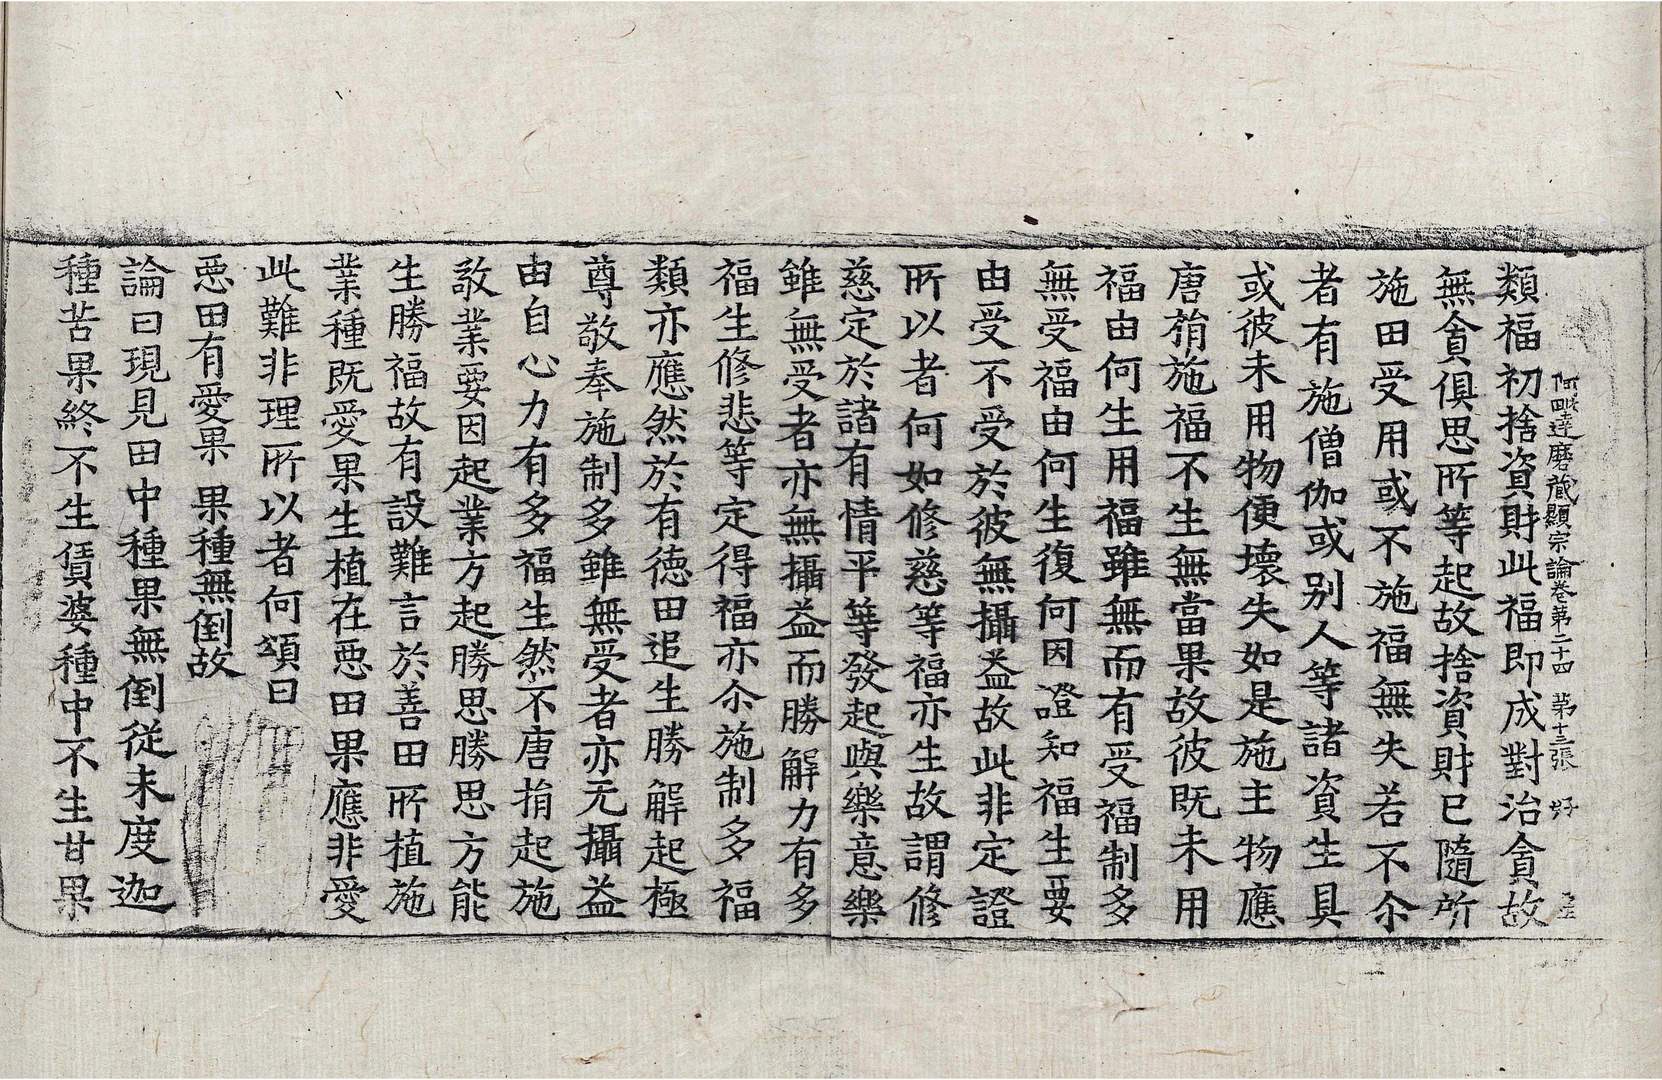 阿毗達磨藏顯宗論卷第二十四 第十三張 好
類福初捨資財此福即成對治貪故
無貪俱思所等起故捨資財已隨所
施田受用或不施福無失若不尒
者有施僧伽或别人等諸資生具
或彼未用物便壞失如是施主物應
唐捐施福不生無當果故彼既未用
福由何生用福雖無而有受福制多
無受福由何生復何因證知福生要
由受不受於彼無攝益故此非定證
所以者何如修慈等福亦生故謂修
慈定於諸有情平等發起與樂意樂
雖無受者亦無攝益而勝解力有多
福生修悲等定得福亦尒施制多福
類亦應然於有徳田追生勝解起極
尊敬奉施制多雖無受者亦无攝益
由自心力有多福生然不唐捐起施
敬業要因起業方起勝思勝思方能
生勝福故有設難言於善田所植施
業種既愛果生植在恶田果應非愛
此難非理所以者何頌曰
恶田有愛果 果種無倒故
論曰現見田中種果無倒従末度迦
種苦果終不生賃婆種中不生甘果